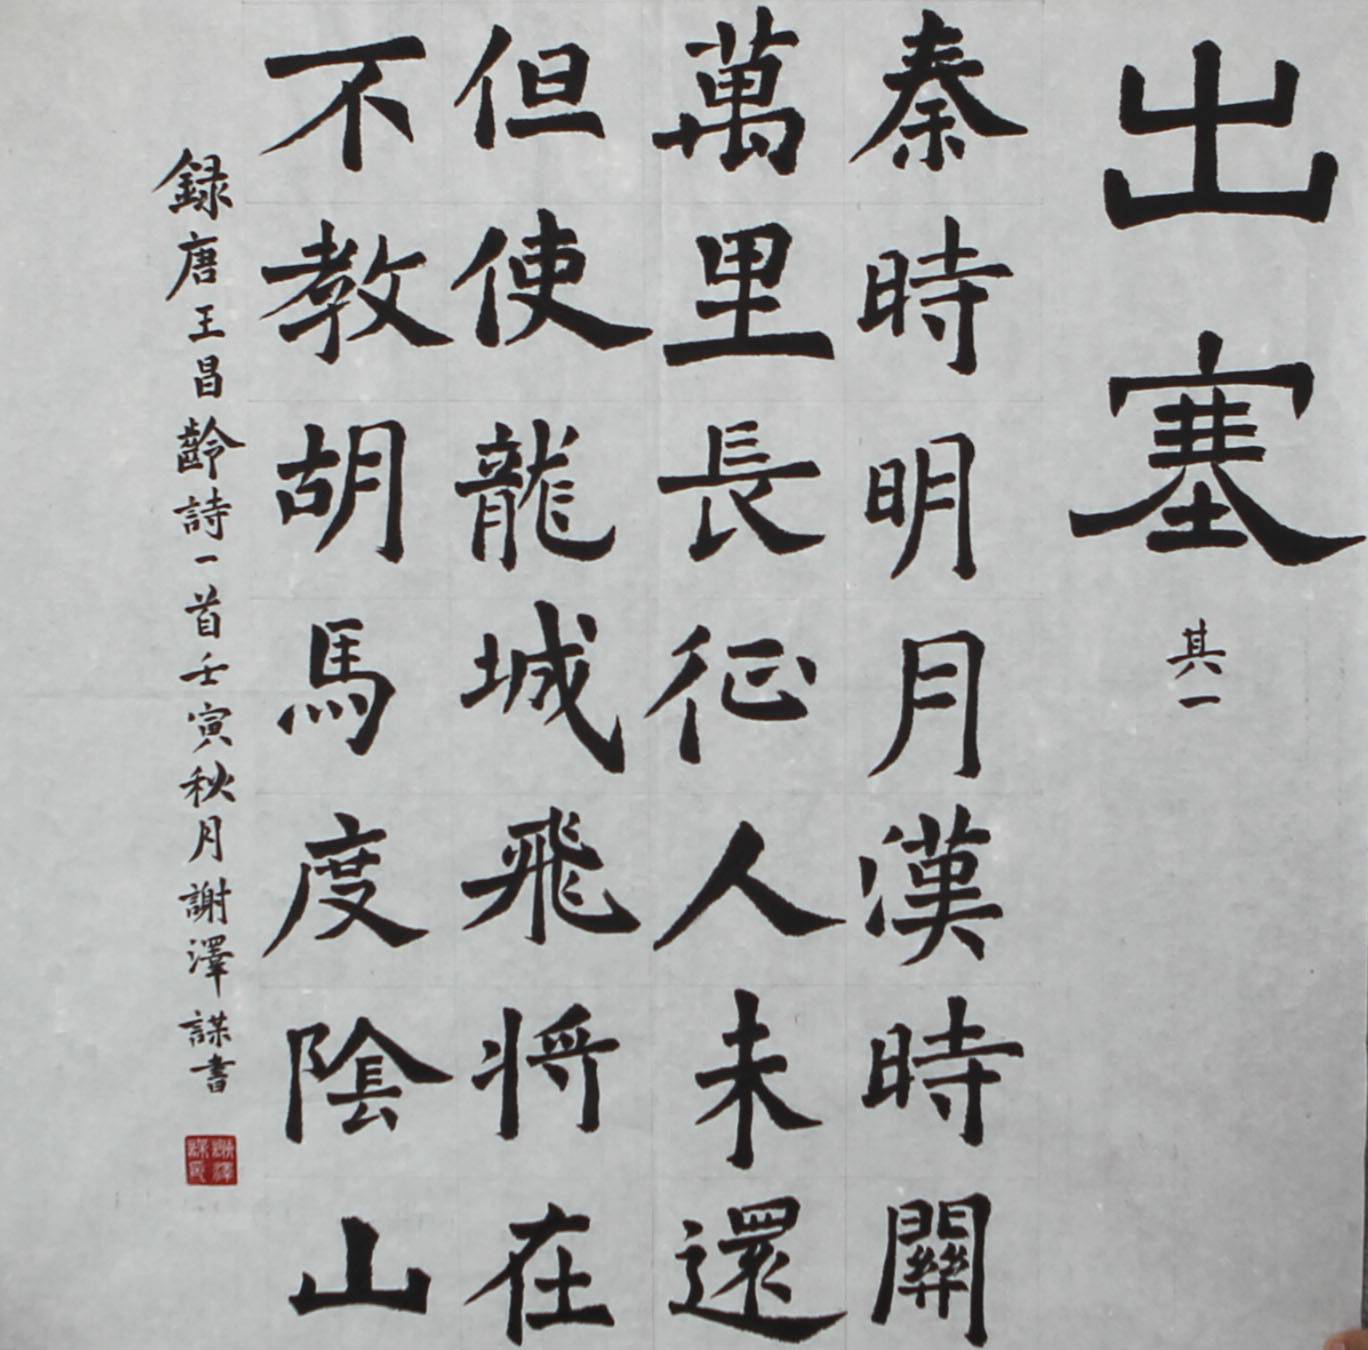 出塞
其一
秦時明月漢時關
萬里長征人未還
但使龍城飛将在
不教胡馬度陰山
録唐王昌齡詩一首壬寅秋月謝澤謀書